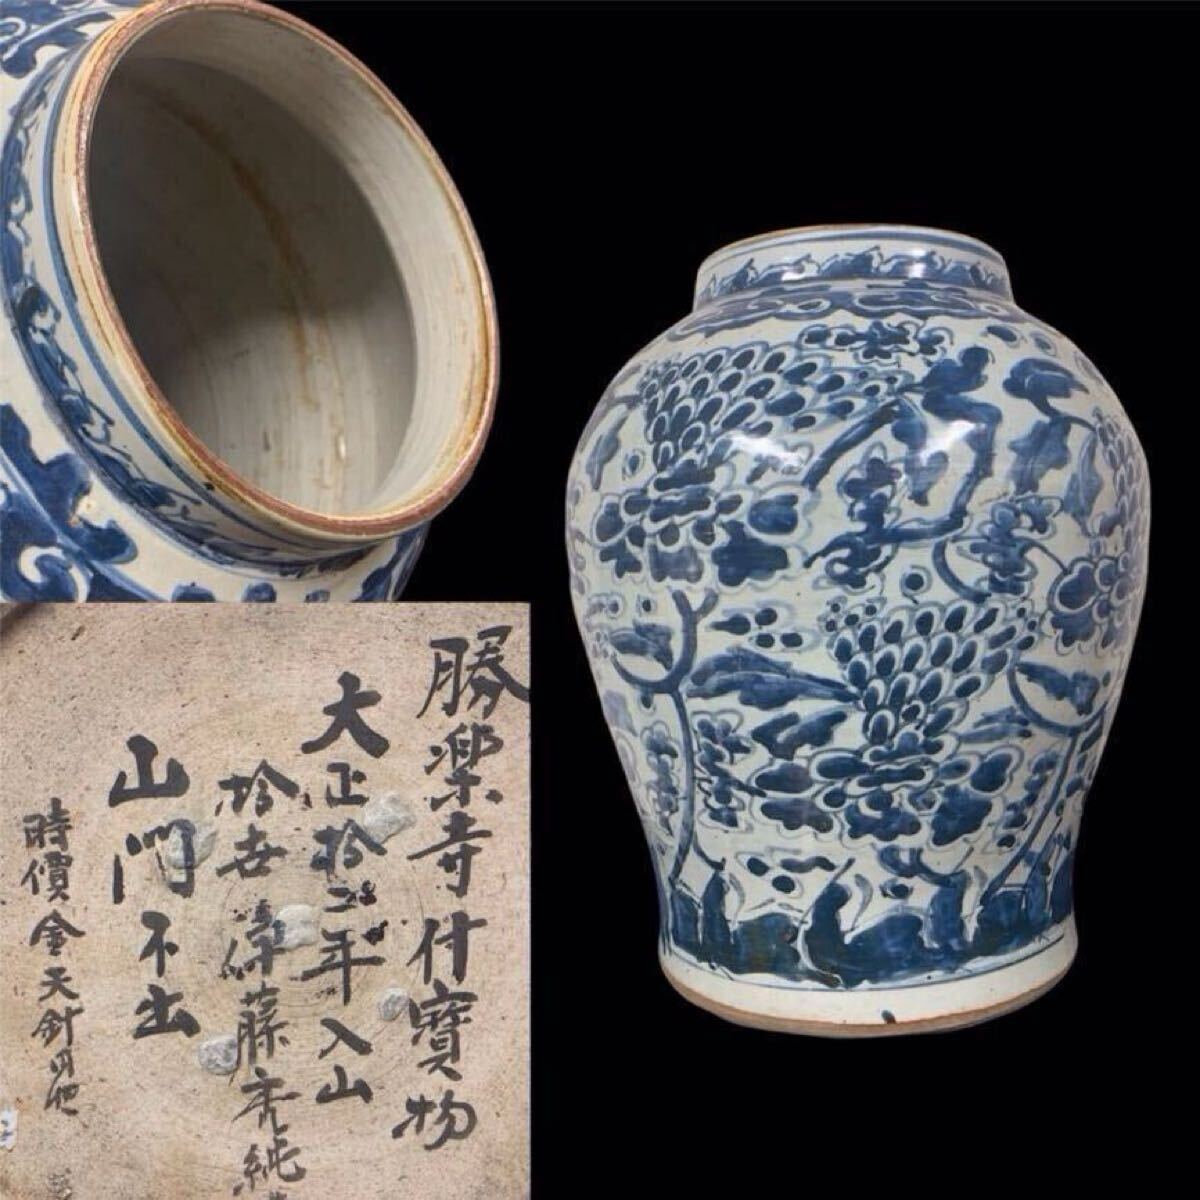 勝楽寺什寳物
大正拾二年入山
拾世 藤亮純
山門不出
時價金天針円也